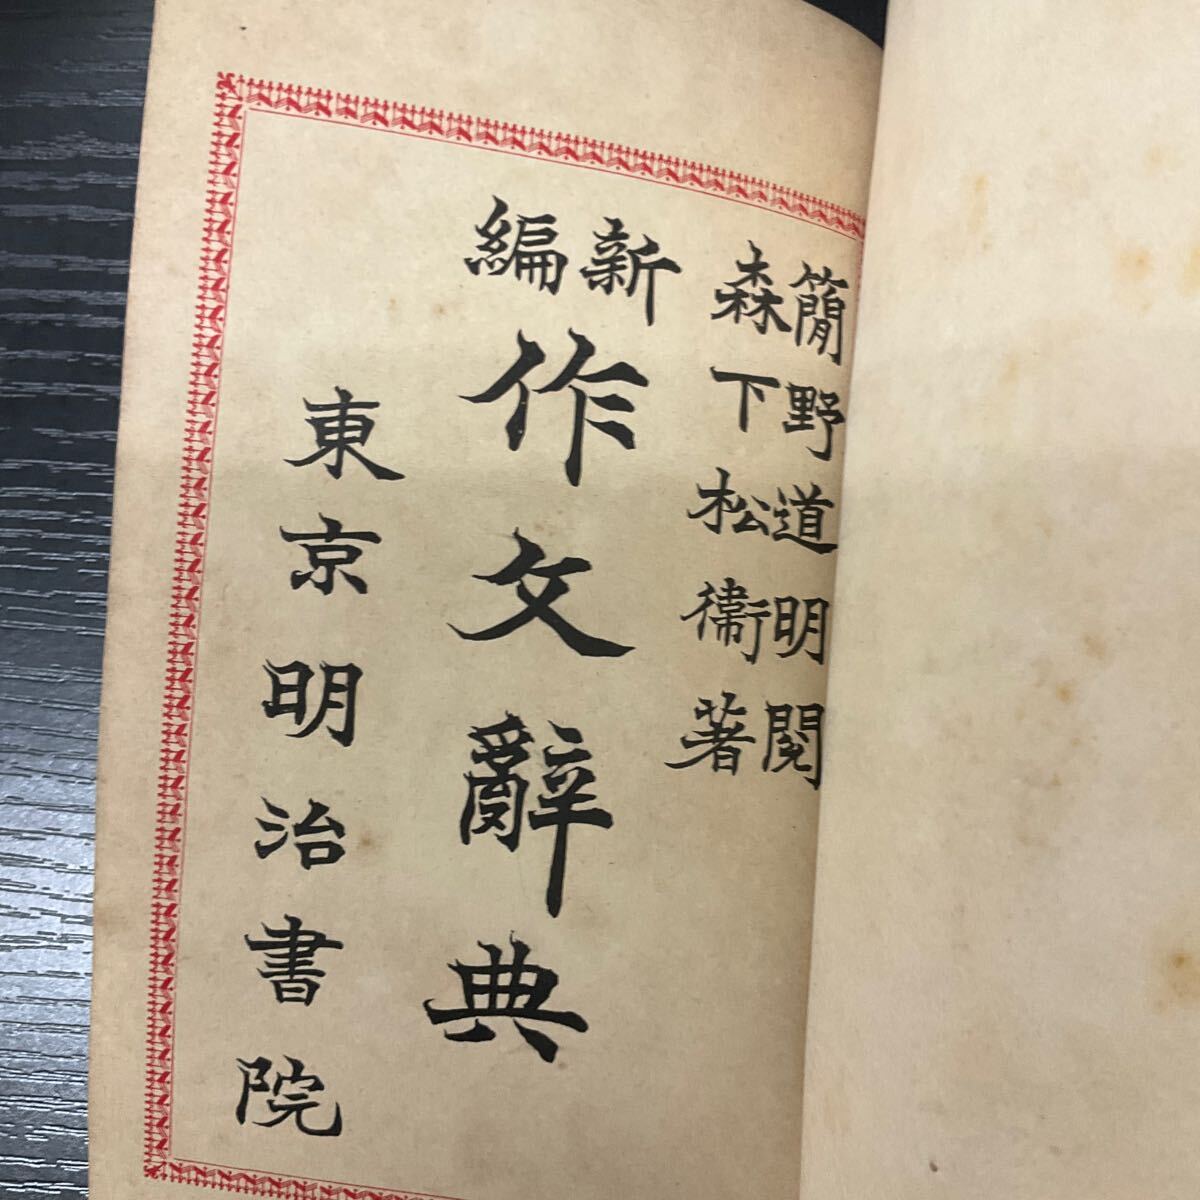 簡野道明閱
森下松衞著
新編
作文辭典
東京明治書院